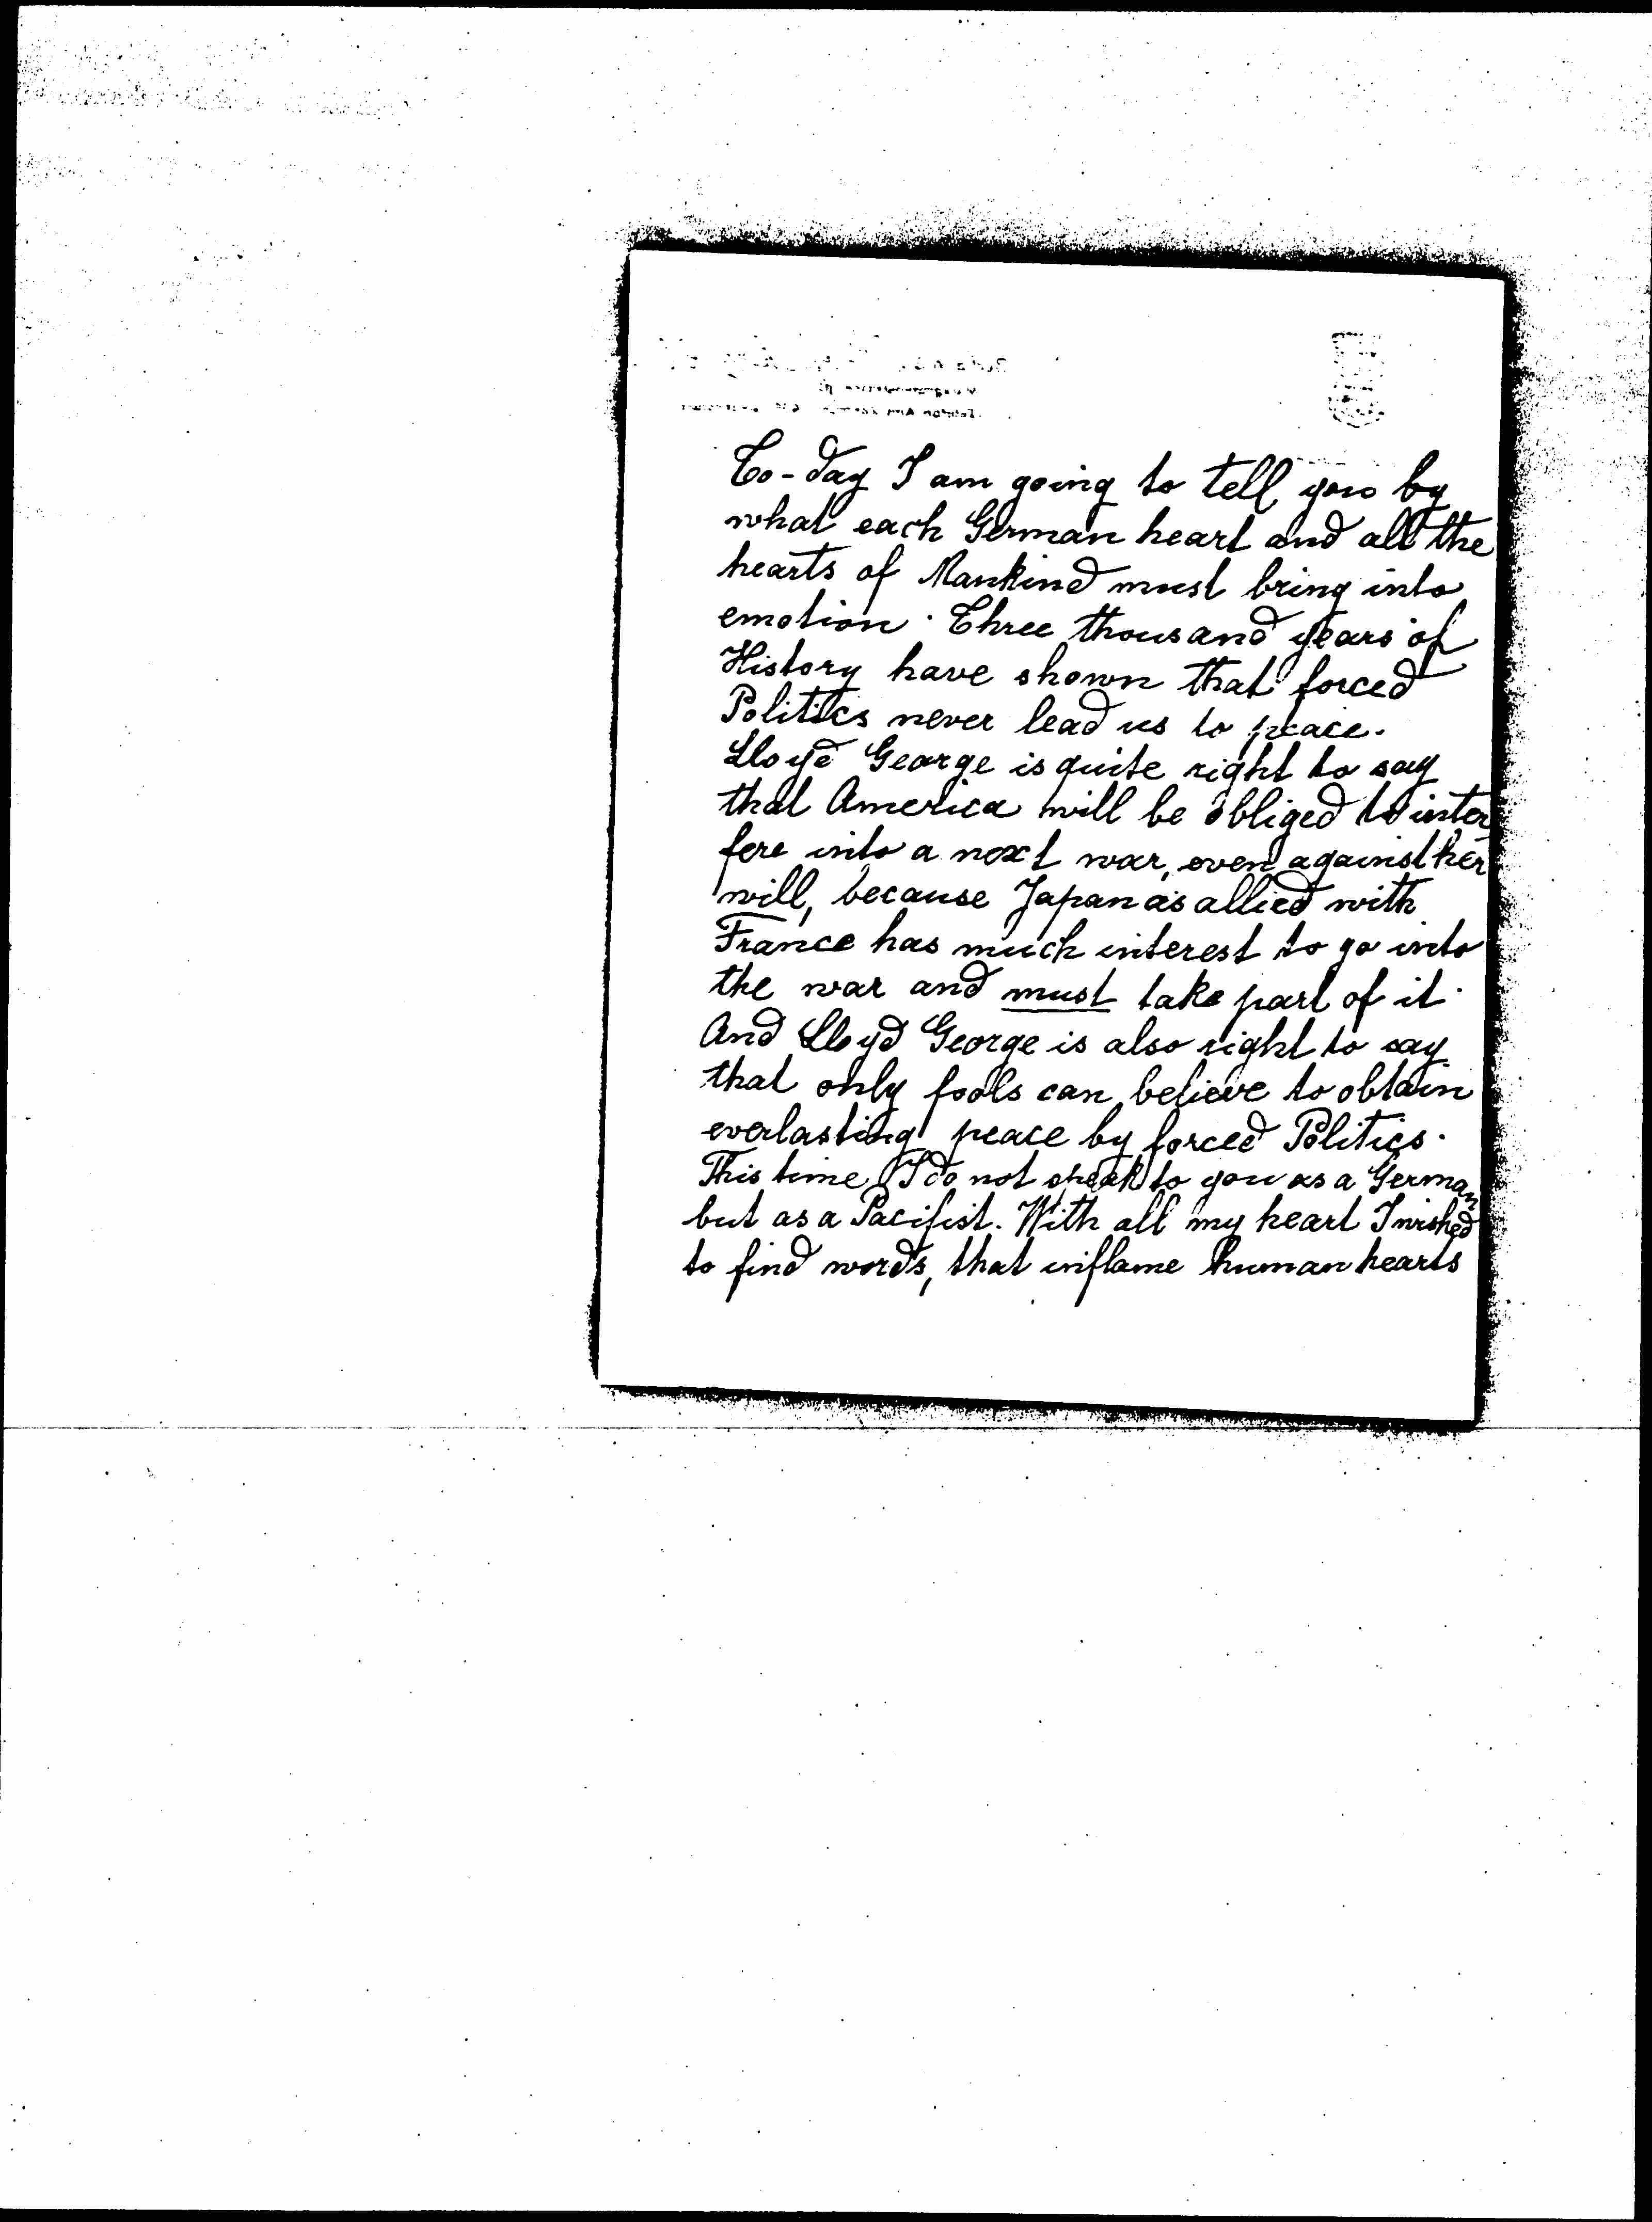 To-day I am going to tell you by
what each German heart and all the
hearts of Mankind must bring into
emotion. Three thousand years of
History have shown that forced
Politics never lead us to peace.
Lloyd George is quite right to say
that America will be obliged to inter
fere into a next war, even against her
will, because Japan as allied with
France has much interest to go into
the war and must take part of it.
And Lloyd George is also right to say
that only fools can believe to obtain
everlasting peace by forced Politics.
This time I do not speak to you as a German
but as a Pacifist. With all my heart I wished
to find words, that inflame human hearts